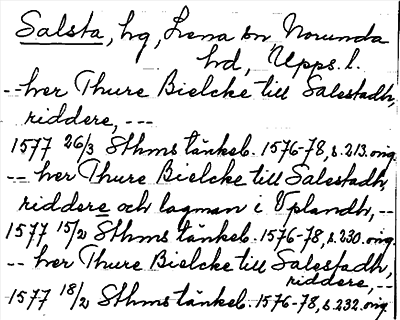 Salsta, hg, Lena sn Norunda
hd, Upps. l.
-- her Thure Bielcke till Salestadh,
riddere, ---
1577 26/3 Sthms tänkeb. 1576-78, s. 213. orig.
-- her Thure Bielcke till Salestadh,
riddere och lagman i Uplandh, --
1577 15/2 Sthms tänkeb. 1576-78, s. 230. orig.
-- her Thure Bielcke till Salestadh,
riddere, --
1577 18/2 Sthms tänkeb. 1576-78, s. 232. orig.